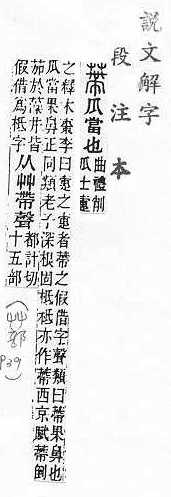 說文解字
段注本
蔕瓜當也
曲禮削
瓜士疐
之釋木棗李曰疐之疐者蔕之假借字聲類曰蔕果鼻也
瓜當果鼻正同類老子深根固柢柢亦作蔕西京賦蔕倒
茄於藻井皆
假借爲柢字
从艸帶聲
都計切
十五部
(艸部
P39)